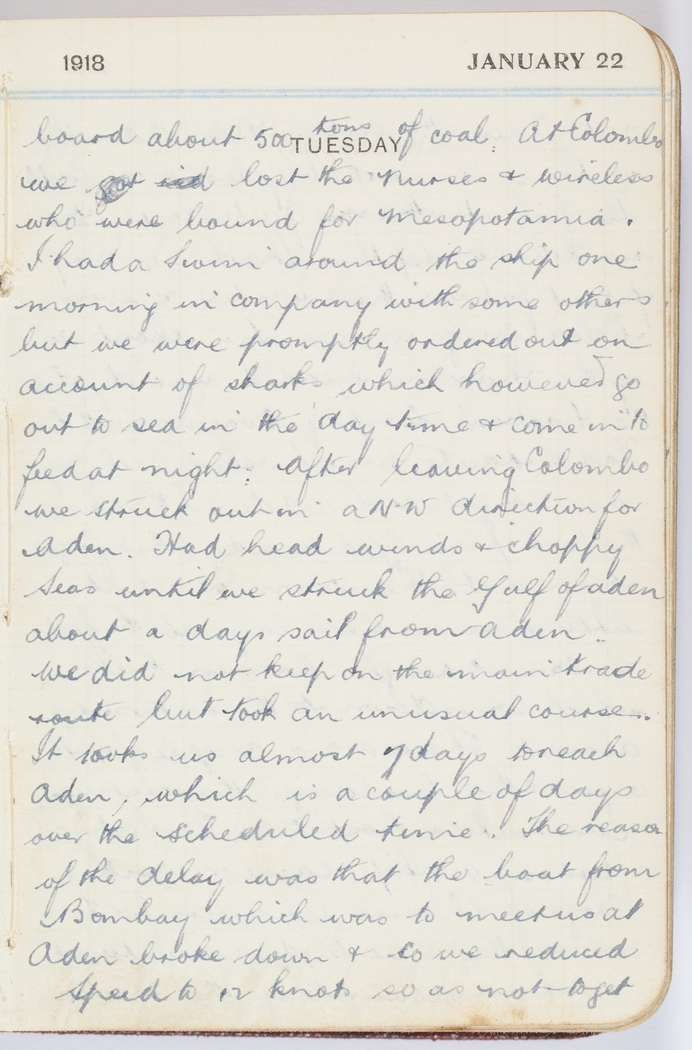 1918 JANUARY 22
TUESDAY
board about 500 tons of coal. At Colombo
we got rid lost the nurses & wireless
who were bound for Mesopotamia.
I had a swim around the ship one
morning in company with some others
but we were promptly ordered out on
account of sharks which however go
out to sea in the day time & come in to
feed at night. After leaving Colombo
we struck out in a N-W direction for
Aden. Had head winds & choppy
seas until we struck the Gulf of Aden
about a days sail from Aden.
We did not keep on the main trade
route but took an unusual course.
It tooks us almost 7 days to reach
Aden, which is a couple of days
over the scheduled time. The reason
of the delay was that the boat from
Bombay which was to meet us at
Aden broke down & so we reduced
speed to 12 knots so as not to get